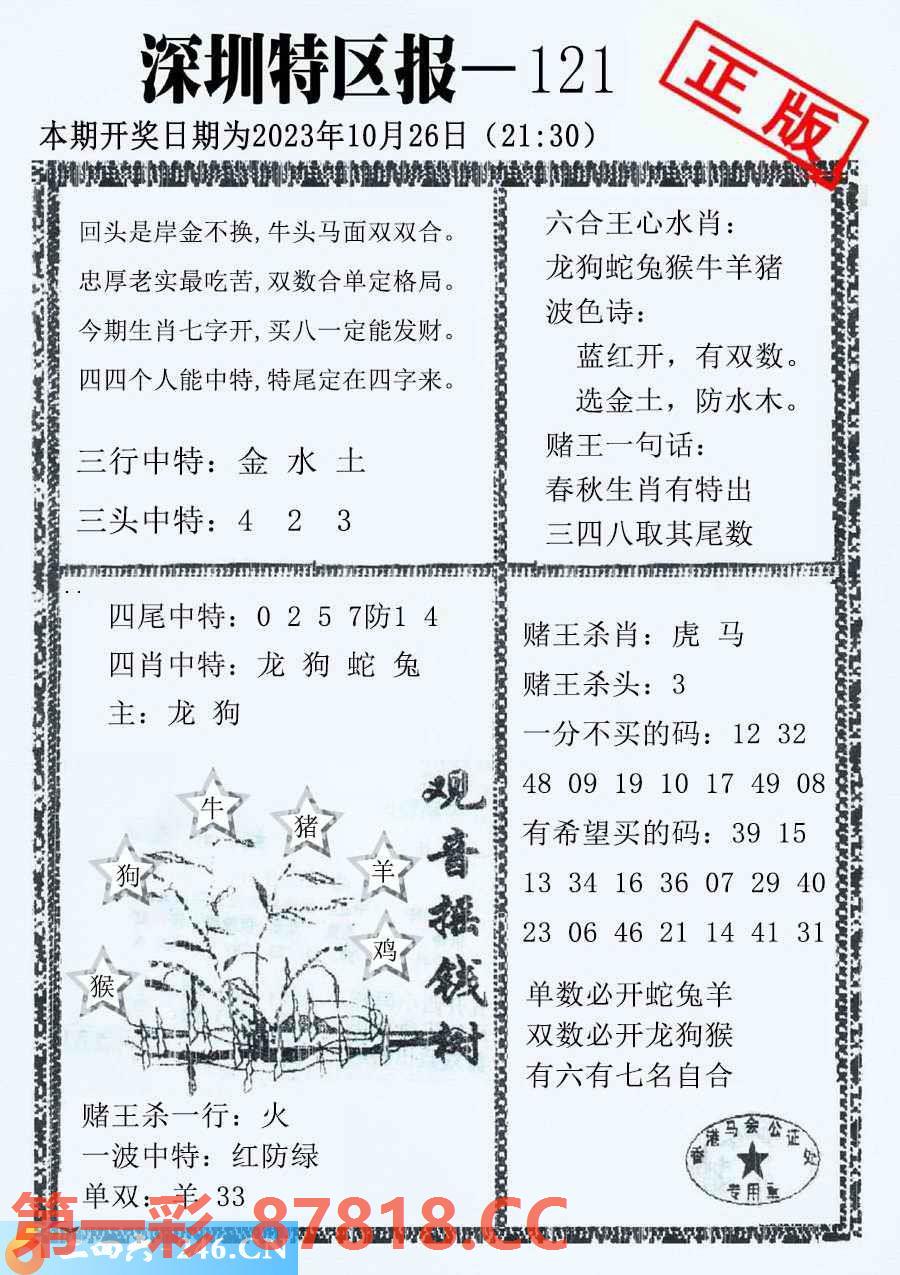 深圳特区报—121
正版
本期开奖日期为2023年10月26日（21:30）
回头是岸金不换,牛头马面双双合。
忠厚老实最吃苦,双数合单定格局。
今期生肖七字开,买八一定能发财。
四四个人能中特,特尾定在四字来。
三行中特：金 水 土
三头中特：4 2 3
六合王心水肖：
龙狗蛇兔猴牛羊猪
波色诗：
蓝红开，有双数。
选金土，防水木。
赌王一句话：
春秋生肖有特出
三四八取其尾数
四尾中特：0 2 5 7防1 4
四肖中特：龙 狗 蛇 兔
主：龙 狗
牛
猪
狗
羊
鸡
猴
观音摇钱树
赌王杀一行：火
一波中特：红防绿
单双：羊 33
赌王杀肖：虎 马
赌王杀头：3
一分不买的码：12 32
48 09 19 10 17 49 08
有希望买的码：39 15
13 34 16 36 07 29 40
23 06 46 21 14 41 31
单数必开蛇兔羊
双数必开龙狗猴
有六有七名自合
香港马会公证处
专用章
第一彩 87818.CC
246.CN